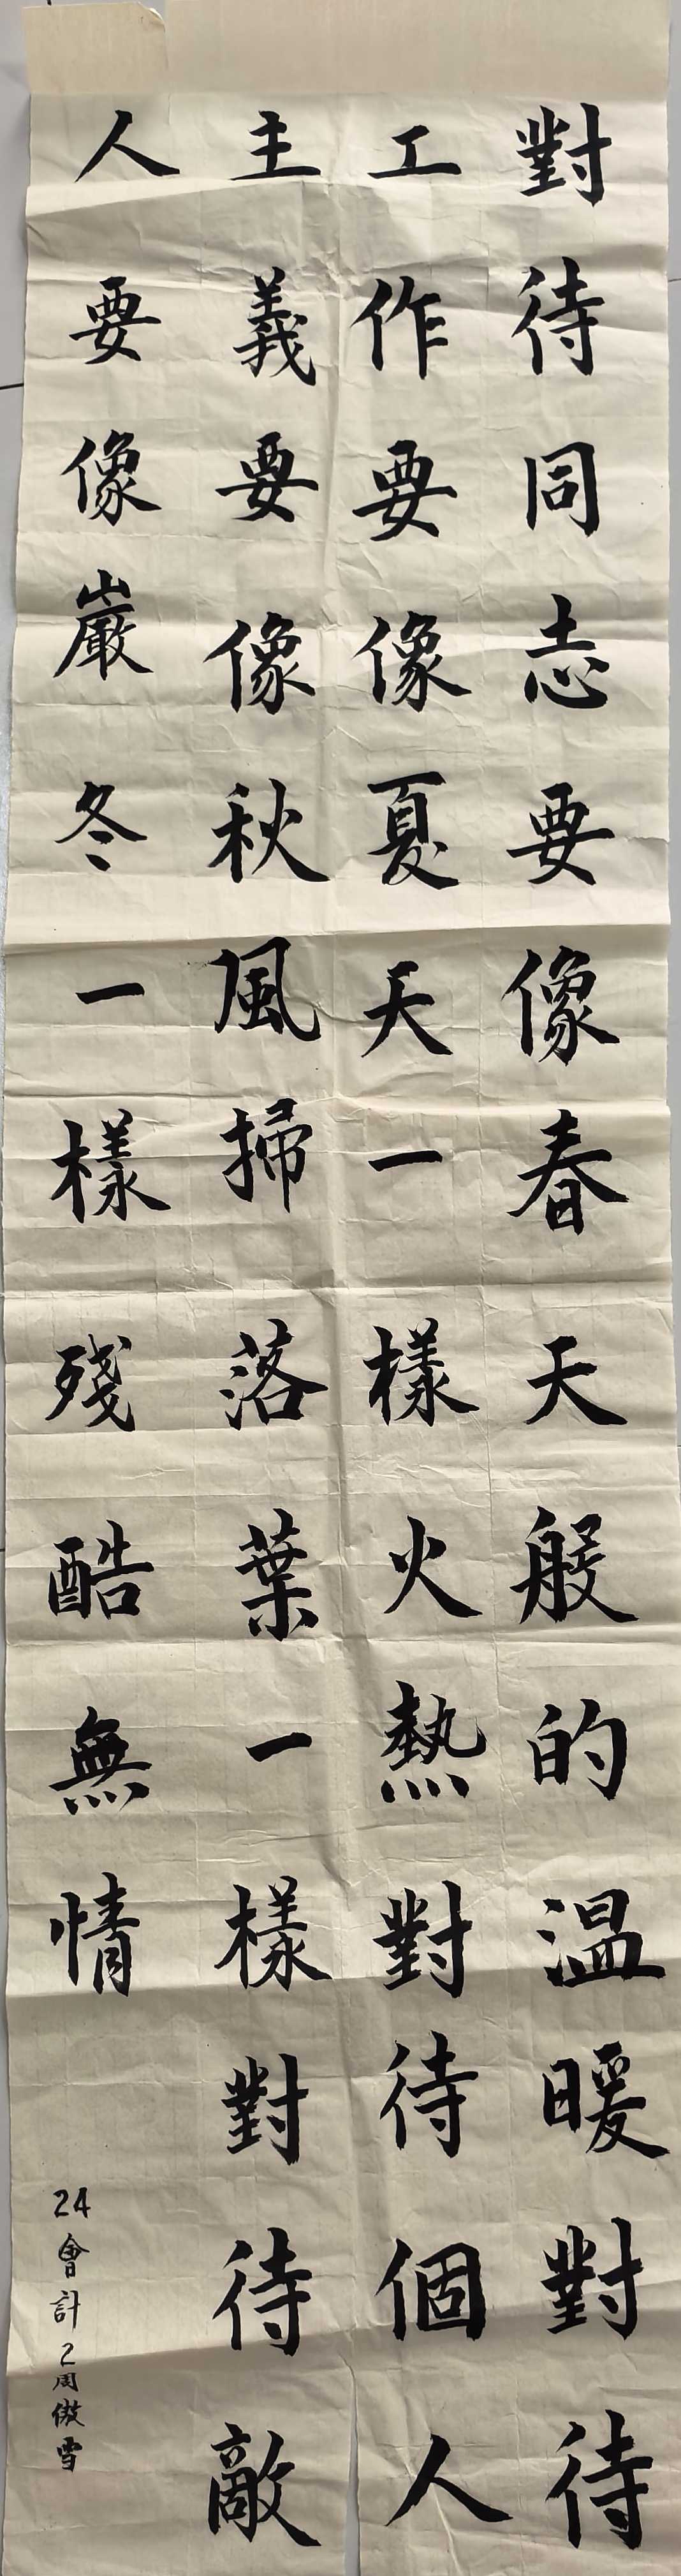 對待同志要像春天般的溫暖對待
工作要像夏天一樣火熱對待個人
主義要像秋風掃落葉一樣對待敵
人要像嚴冬一樣殘酷無情
24會計2周傲雪